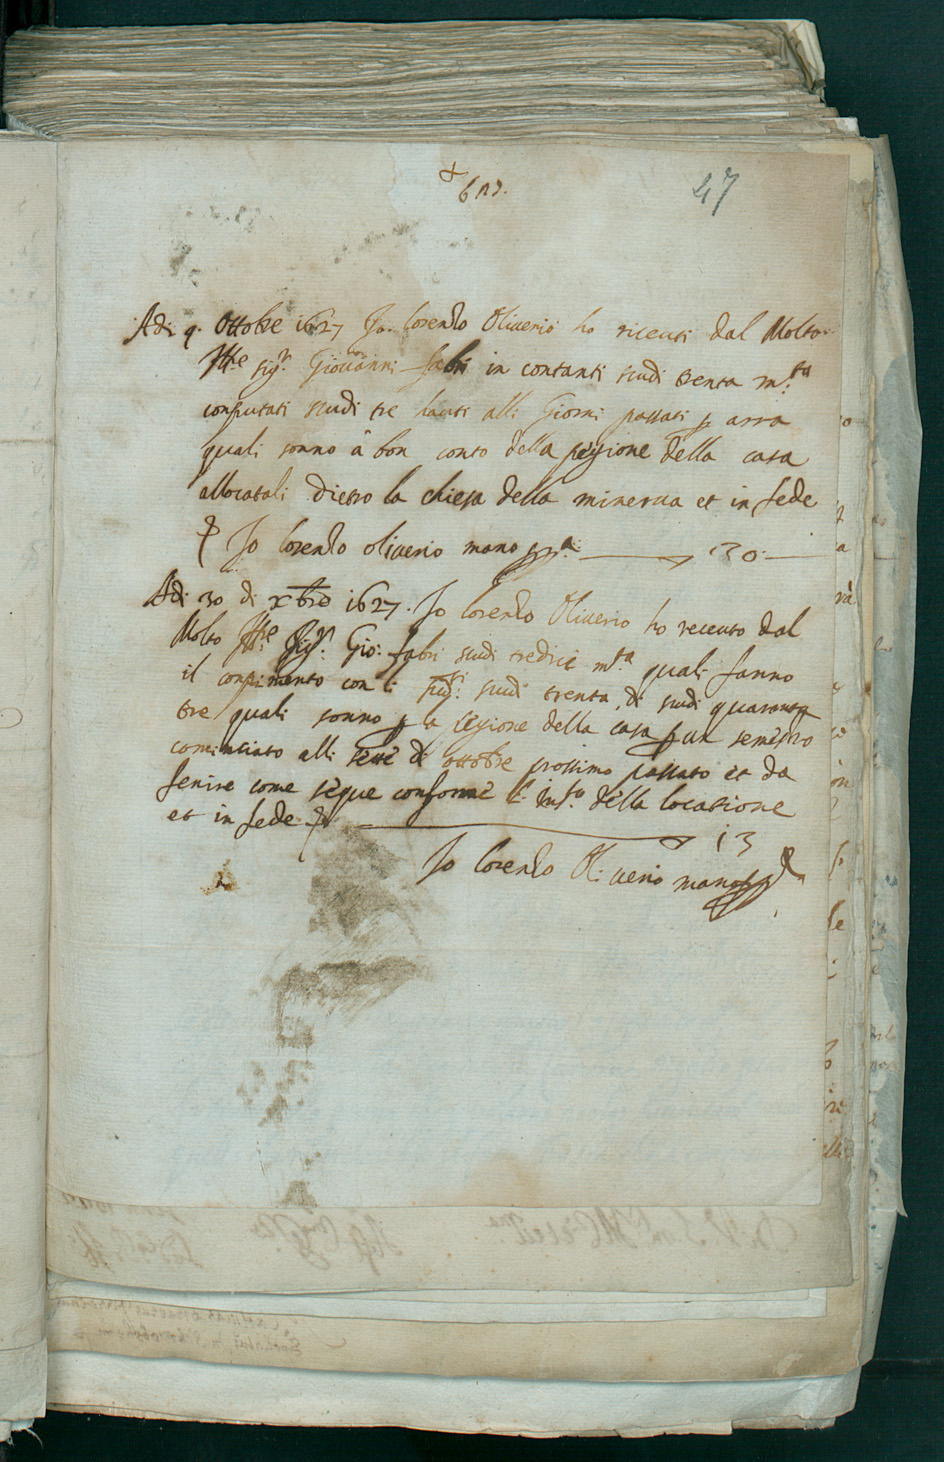 47
Adi 9. Ottobre 1627 Io Lorenzo Oliverio ho riceuti dal Molto
Ill.re Sig.r Giovanni fabri in contanti scudi trenta m.ta
computati scudi tre hauti alli Giorni passati p arra
quali sonno à bon conto della pigione della casa
allocatali dietro la chiesa della minerva et in fede
Io Lorenzo oliverio mano pp.a 30
Adi 30 di xbre 1627. Io Lorenzo Oliverio ho receuto dal
Molto Ill.re Sig.r Gio: fabri scudi tredici m.ta quali sanno
il compimento con li sud.ti scudi trenta, di scudi quaranta
tre quali sonno p la pigione della casa p un semestro
cominciato alli sette di ottobre prossimo passato et da
fenire come segue conforme l' Inst.o della locatione
et in fede 13
Io Lorenzo Oliverio mano pp.a